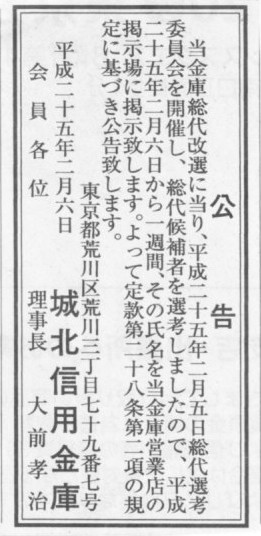 公告
当金庫総代改選に当り、平成二十五年二月五日総代選考
委員会を開催し、総代候補者を選考しましたので、平成
二十五年二月六日から一週間、その氏名を当金庫営業店の
掲示場に掲示致します。よって定款第二十八条第二項の規
定に基づき公告致します。
平成二十五年二月六日
会員各位
東京都荒川区荒川三丁目七十九番七号
城北信用金庫
理事長 大前孝治